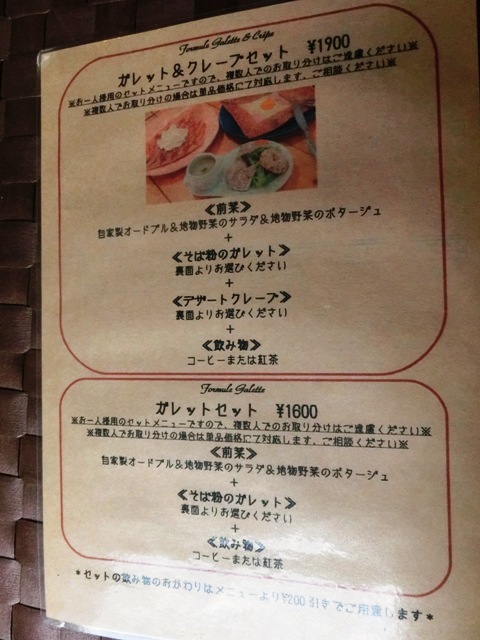 Formule Galette & Crêpe
ガレット＆クレープセット ¥1900
※お一人様用のセットメニューですので、複数人でのお取り分けはご遠慮ください※
※複数人でお取り分けの場合は単品価格にて対応します。ご相談ください※
≪前菜≫
自家製オードブル＆地物野菜のサラダ＆地物野菜のポタージュ
+
≪そば粉のガレット≫
裏面よりお選びください
+
≪デザートクレープ≫
裏面よりお選びください
+
≪飲み物≫
コーヒーまたは紅茶
Formule Galette
ガレットセット ¥1600
※お一人様用のセットメニューですので、複数人でのお取り分けはご遠慮ください※
※複数人でお取り分けの場合は単品価格にて対応します。ご相談ください※
≪前菜≫
自家製オードブル＆地物野菜のサラダ＆地物野菜のポタージュ
+
≪そば粉のガレット≫
裏面よりお選びください
+
≪飲み物≫
コーヒーまたは紅茶
*セットの飲み物のおかわりはメニューより¥200引きでご用意します*